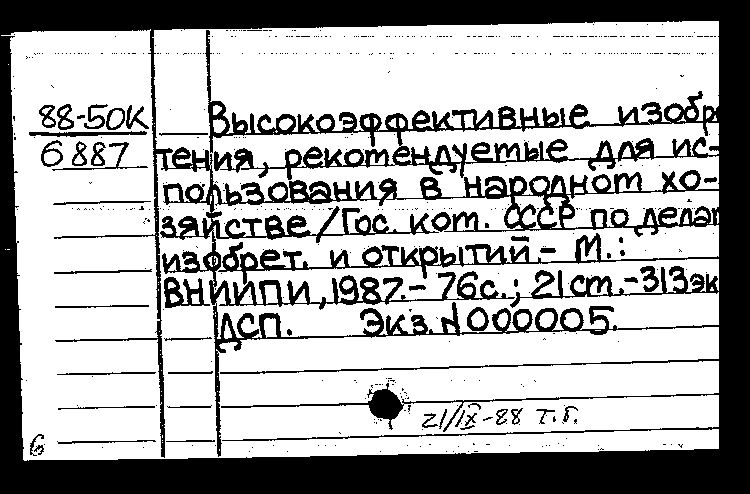 88-50К Высокоэффективные изобр
6887 тения, рекомендуемые для ис-
пользования в народном хо-
зяйстве/Гос. ком. СССР по делам
изобрет. и открытий.- М.:
ВНИИПИ, 1987.- 76с.; 21 см.-313эк
ДСП. Экз. N000005.
21/IX-88 Т.Г.
6